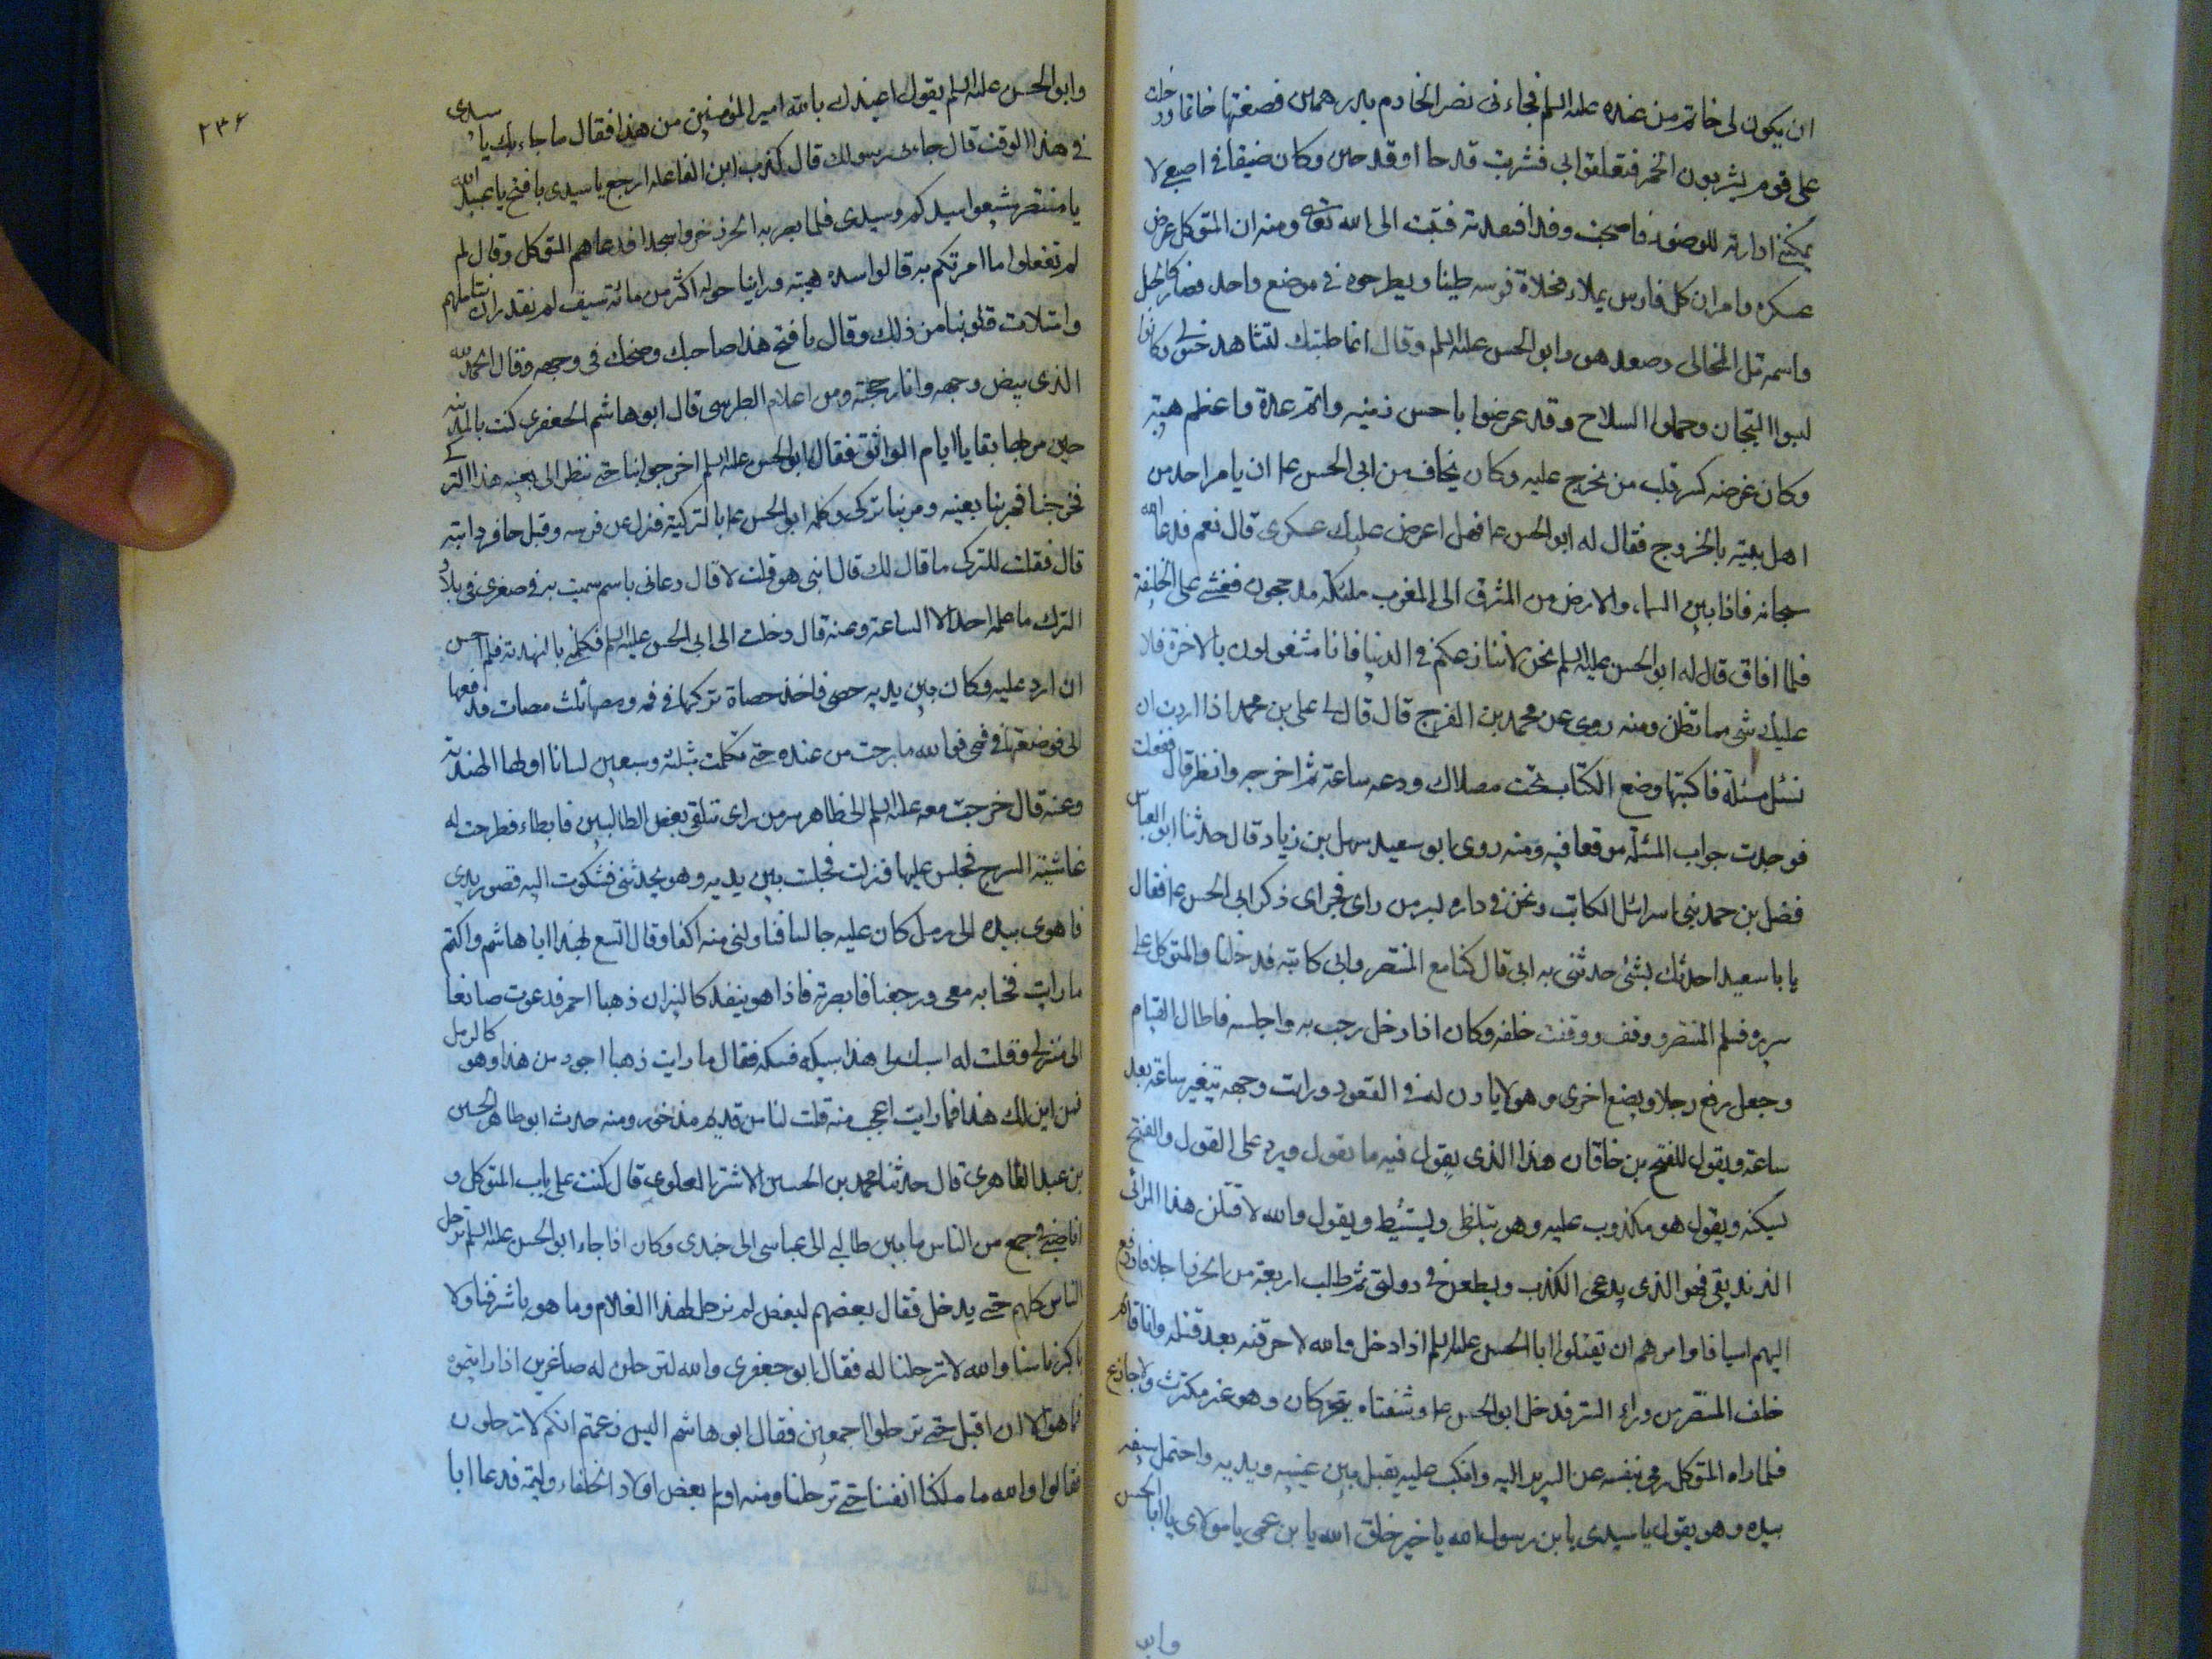 ان يكون لى خاتم من عنده عليه السلم فجاءنى نصر الخادم بدرهمين فصغتها خاتما ودخلت
على قوم يشربون الخمر فتعلقوا بى فشربت قدحا او قدحين وكان ضيقا فى اصبعى لا
يمكننى ادارته للوضوء فاصبحت وقد افتقدته فتبت الى الله تعالى ومنه ان المتوكل عرض
عسكره وامر ان كل فارس يملاء مخلاة فرسه طينا ويطرحوه فى موضع واحد فصار كالجبل
واسمه تل المخالى وصعد هو وابو الحسن عليه السلم وقال انما طلبتك لتشاهد خيلى وكانوا
لبسوا التيجان وحملوا السلاح وقد عرضوا باحسن زينه واتم عدة واعظم هيبة
وكان غرضه كسر قلب من يخرج عليه وكان يخاف من ابى الحسن عم ان يامر احد من
اهل بيته بالخروج فقال له ابو الحسن عم فهل اعرض عليك عسكرى قال نعم فدعا الله
سبحانه فاذا بين السماء والارض من المشرق الى المغرب ملئكة مدججون فغشى على الخليفة
فلما افاق قال له ابو الحسن عليه السلم نحن لا ننازعكم فى الدنيا فانا مشغولون بالاخرة فلا
عليك شى مما تظن ومنه روى عن محمد بن الفرج قال قال لى على بن محمد اذا اردت ان
تسئل مسئلة فاكتبها وضع الكتاب تحت مصلاك ودعه ساعة ثم اخرجه وانظر قال ففعلت
فوجدت جواب المسئلة موقعا فيه ومنه روى ابو سعيد سهل بن زياد قال حدثنا ابو العباس
فضل بن احمد بن اسرائيل الكاتب ونحن فى داره بسر من راى فجرى ذكر ابى الحسن عم فقال
يا با سعيد احدثك بشئ حدثنى به ابى قال كنا مع المنتصر وابى كاتبه فدخلنا والمتوكل على
سريره فسلم المنتصر ووقف ووقفت خلفه وكان اذا دخل رحب به واجلسه فاطال القيام
وجعل يرفع رجلا ويضع اخرى وهو لا ياذن له فى القعود ورايت وجهه يتغير ساعة بعد
ساعة ويقول للفتح بن خاقان هذا الذى يقول فيه ما يقول ويرد على القول والفتح
يسكنه ويقول هو مكذوب عليه وهو يتلظى ويستشيط ويقول والله لاقتلن هذا المرائى
الزنديق فهو الذى يدعى الكذب ويطعن فى دولتى ثم طلب اربعة من الخزر اجلافا ودفع
اليهم اسيافا وامرهم ان يقتلوا ابا الحسن عليه السلم اذا دخل والله لاحرقنه بعد قتله وانا قائم
خلف المنتصر من وراء الستر فدخل ابو الحسن عم وشفتاه يتحركان وهو غير مكترث ولا جازع
فلما راه المتوكل رمى بنفسه عن السرير اليه وانكب عليه يقبل بين عينيه ويديه واحتمل سيفه
بيده وهو يقول يا سيدى يا بن رسول الله يا خير خلق الله يا بن عمى يا مولاى يا ابا الحسن
وابو
٢٣٤
وابو الحسن عليه السلم يقول اعيذك بالله امير المؤمنين من هذا فقال ما جاء بك يا سيدى
فى هذا الوقت قال جاءنى رسولك قال كذب ابن الفاعله ارجع يا سيدى يا فتح يا عبيد الله
يا منتصر شيعوا سيدكم وسيدى فلما بصر به الخزر خروا سجدا فدعاهم المتوكل وقال لم
لم تفعلوا ما امرتكم به قالوا شدة هيبته وراينا حوله اكثر من مائة سيف لم نقدر ان نتاملهم
وامتلات قلوبنا من ذلك وقال يا فتح هذا صاحبك وضحك فى وجهه وقال الحمد لله
الذى بيض وجهه وانار حجته ومن اعلام الطبرسى قال ابو هاشم الجعفرى كنت بالمدينة
حين مر بها بغا ايام الواثق فقال ابو الحسن عليه السلم اخرجوا بنا حتى ننظر الى تعبية هذا التركى
فخرجنا فمرت بنا تعبيته ومر بنا تركى وكلمه ابو الحسن عم بالتركية فنزل عن فرسه وقبل حافر دابته
قال فقلت للتركى ما قال لك قال انبى هو قلت لا قال دعانى باسم سميت به فى صغرى فى بلاد
الترك ما علمه احد الا الساعة وعنه قال دخلت الى ابى الحسن عليه السلم فكلمنى بالهندية فلم احسن
ان ارد عليه وكان بين يديه حصى فاخذ حصاة تركها فى فمه ومصها ثلث مصات فدفعها
الى فوضعتها فى فمى فوالله ما برحت من عنده حتى تكلمت بثلثة وسبعين لسانا اولها الهندية
وعنه قال خرجت معه عليه السلم الى ظاهر سر من راى نتلقى بعض الطالبيين فابطاء فطرحت له
غاشية السرج فجلس عليها فنزلت فجلست بين يديه وهو يحدثنى فشكوت اليه قصور يدى
فاهوى بيده الى رمل كان عليه جالسا فناولنى منه اكفا وقال اتسع بهذا ابا هاشم واكتم
ما رايت فخبا به معى ورجعنا فابصرته فاذا هو يتقد كالنيران ذهبا احمر فدعوت صائغا
الى منزلى وقلت له اسبك لى هذا سبيكه فسبكه فقال ما رايت ذهبا اجود من هذا وهو كالرمل
فمن اين لك هذا فما رايت اعجب منه قلت لناس قديم مذخور ومنه حدث ابو طاهر الحسين
بن عبد القاهر الطاهرى قال حدثنا محمد بن الحسين الاشتر العلوى قال كنت على باب المتوكل و
انا صبى فى جمع من الناس ما بين طالبى الى عباسى الى جندى وكان اذا جاء ابو الحسن عليه السلم ترجل
الناس كلهم حتى يدخل فقال بعضهم لبعض لم نترجل لهذا الغلام وما هو باشرفنا ولا
باكبرنا سنا والله لا ترجلنا له فقال ابو جعفرى والله لتترجلن له صاغرين اذا رايتموه
فما هو الا ان اقبل حتى ترجلوا اجمعين فقال ابو هاشم اليس زعمتم انكم لا ترجلون
فقالوا والله ما ملكنا انفسنا حتى ترجلنا ومنه اولم بعض اولاد الخلفاء وليمة فدعا ابا